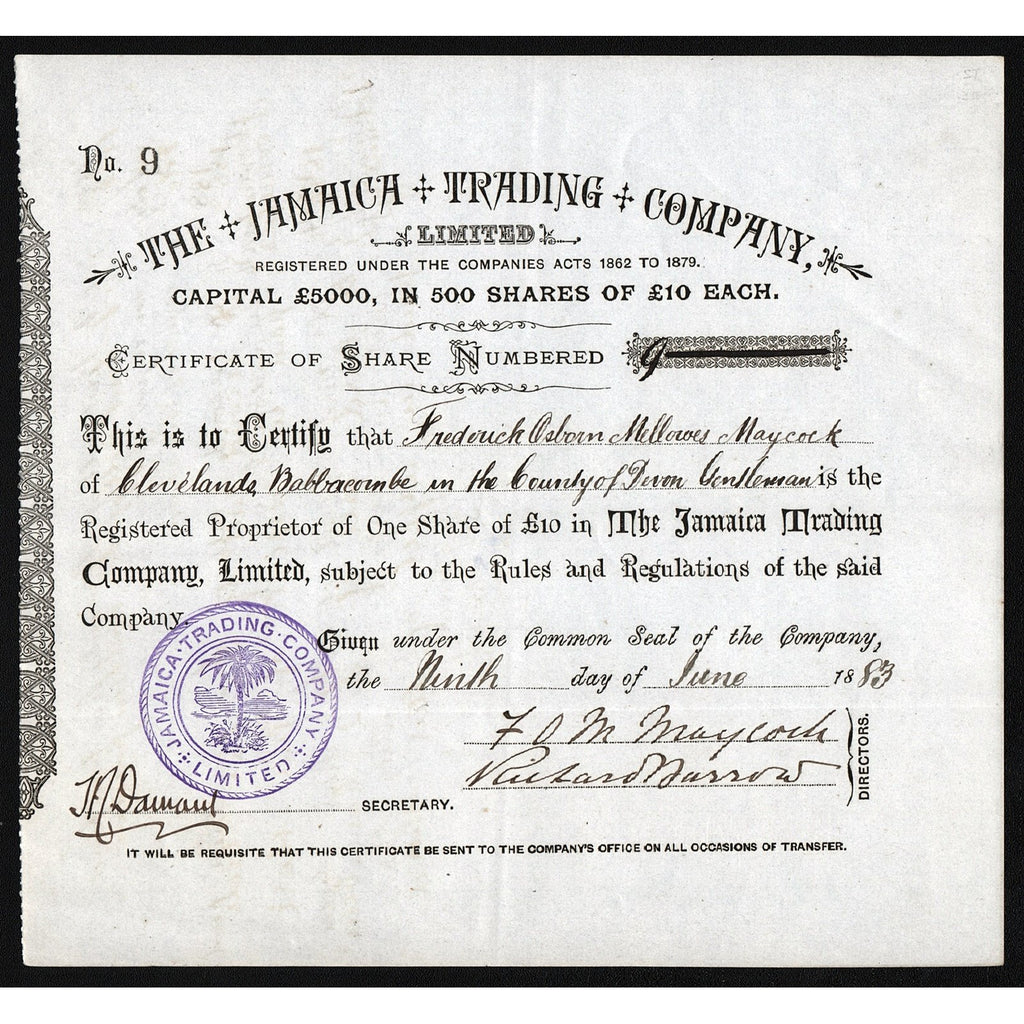 No. 9
THE JAMAICA TRADING COMPANY,
LIMITED
REGISTERED UNDER THE COMPANIES ACTS 1862 TO 1879.
CAPITAL £5000, IN 500 SHARES OF £10 EACH.
CERTIFICATE OF SHARE NUMBERED 9
This is to Certify that Frederick Osborn Mellowes Maycock
of Clevelands, Babbacombe in the County of Devon Gentleman is the
Registered Proprietor of One Share of £10 in The Jamaica Trading
Company, Limited, subject to the Rules and Regulations of the said
Company.
Given under the Common Seal of the Company,
the Ninth day of June 1883
JAMAICA · TRADING · COMPANY
LIMITED
F O M Maycock
Richard Barrow
DIRECTORS.
Damant SECRETARY.
IT WILL BE REQUISITE THAT THIS CERTIFICATE BE SENT TO THE COMPANY'S OFFICE ON ALL OCCASIONS OF TRANSFER.